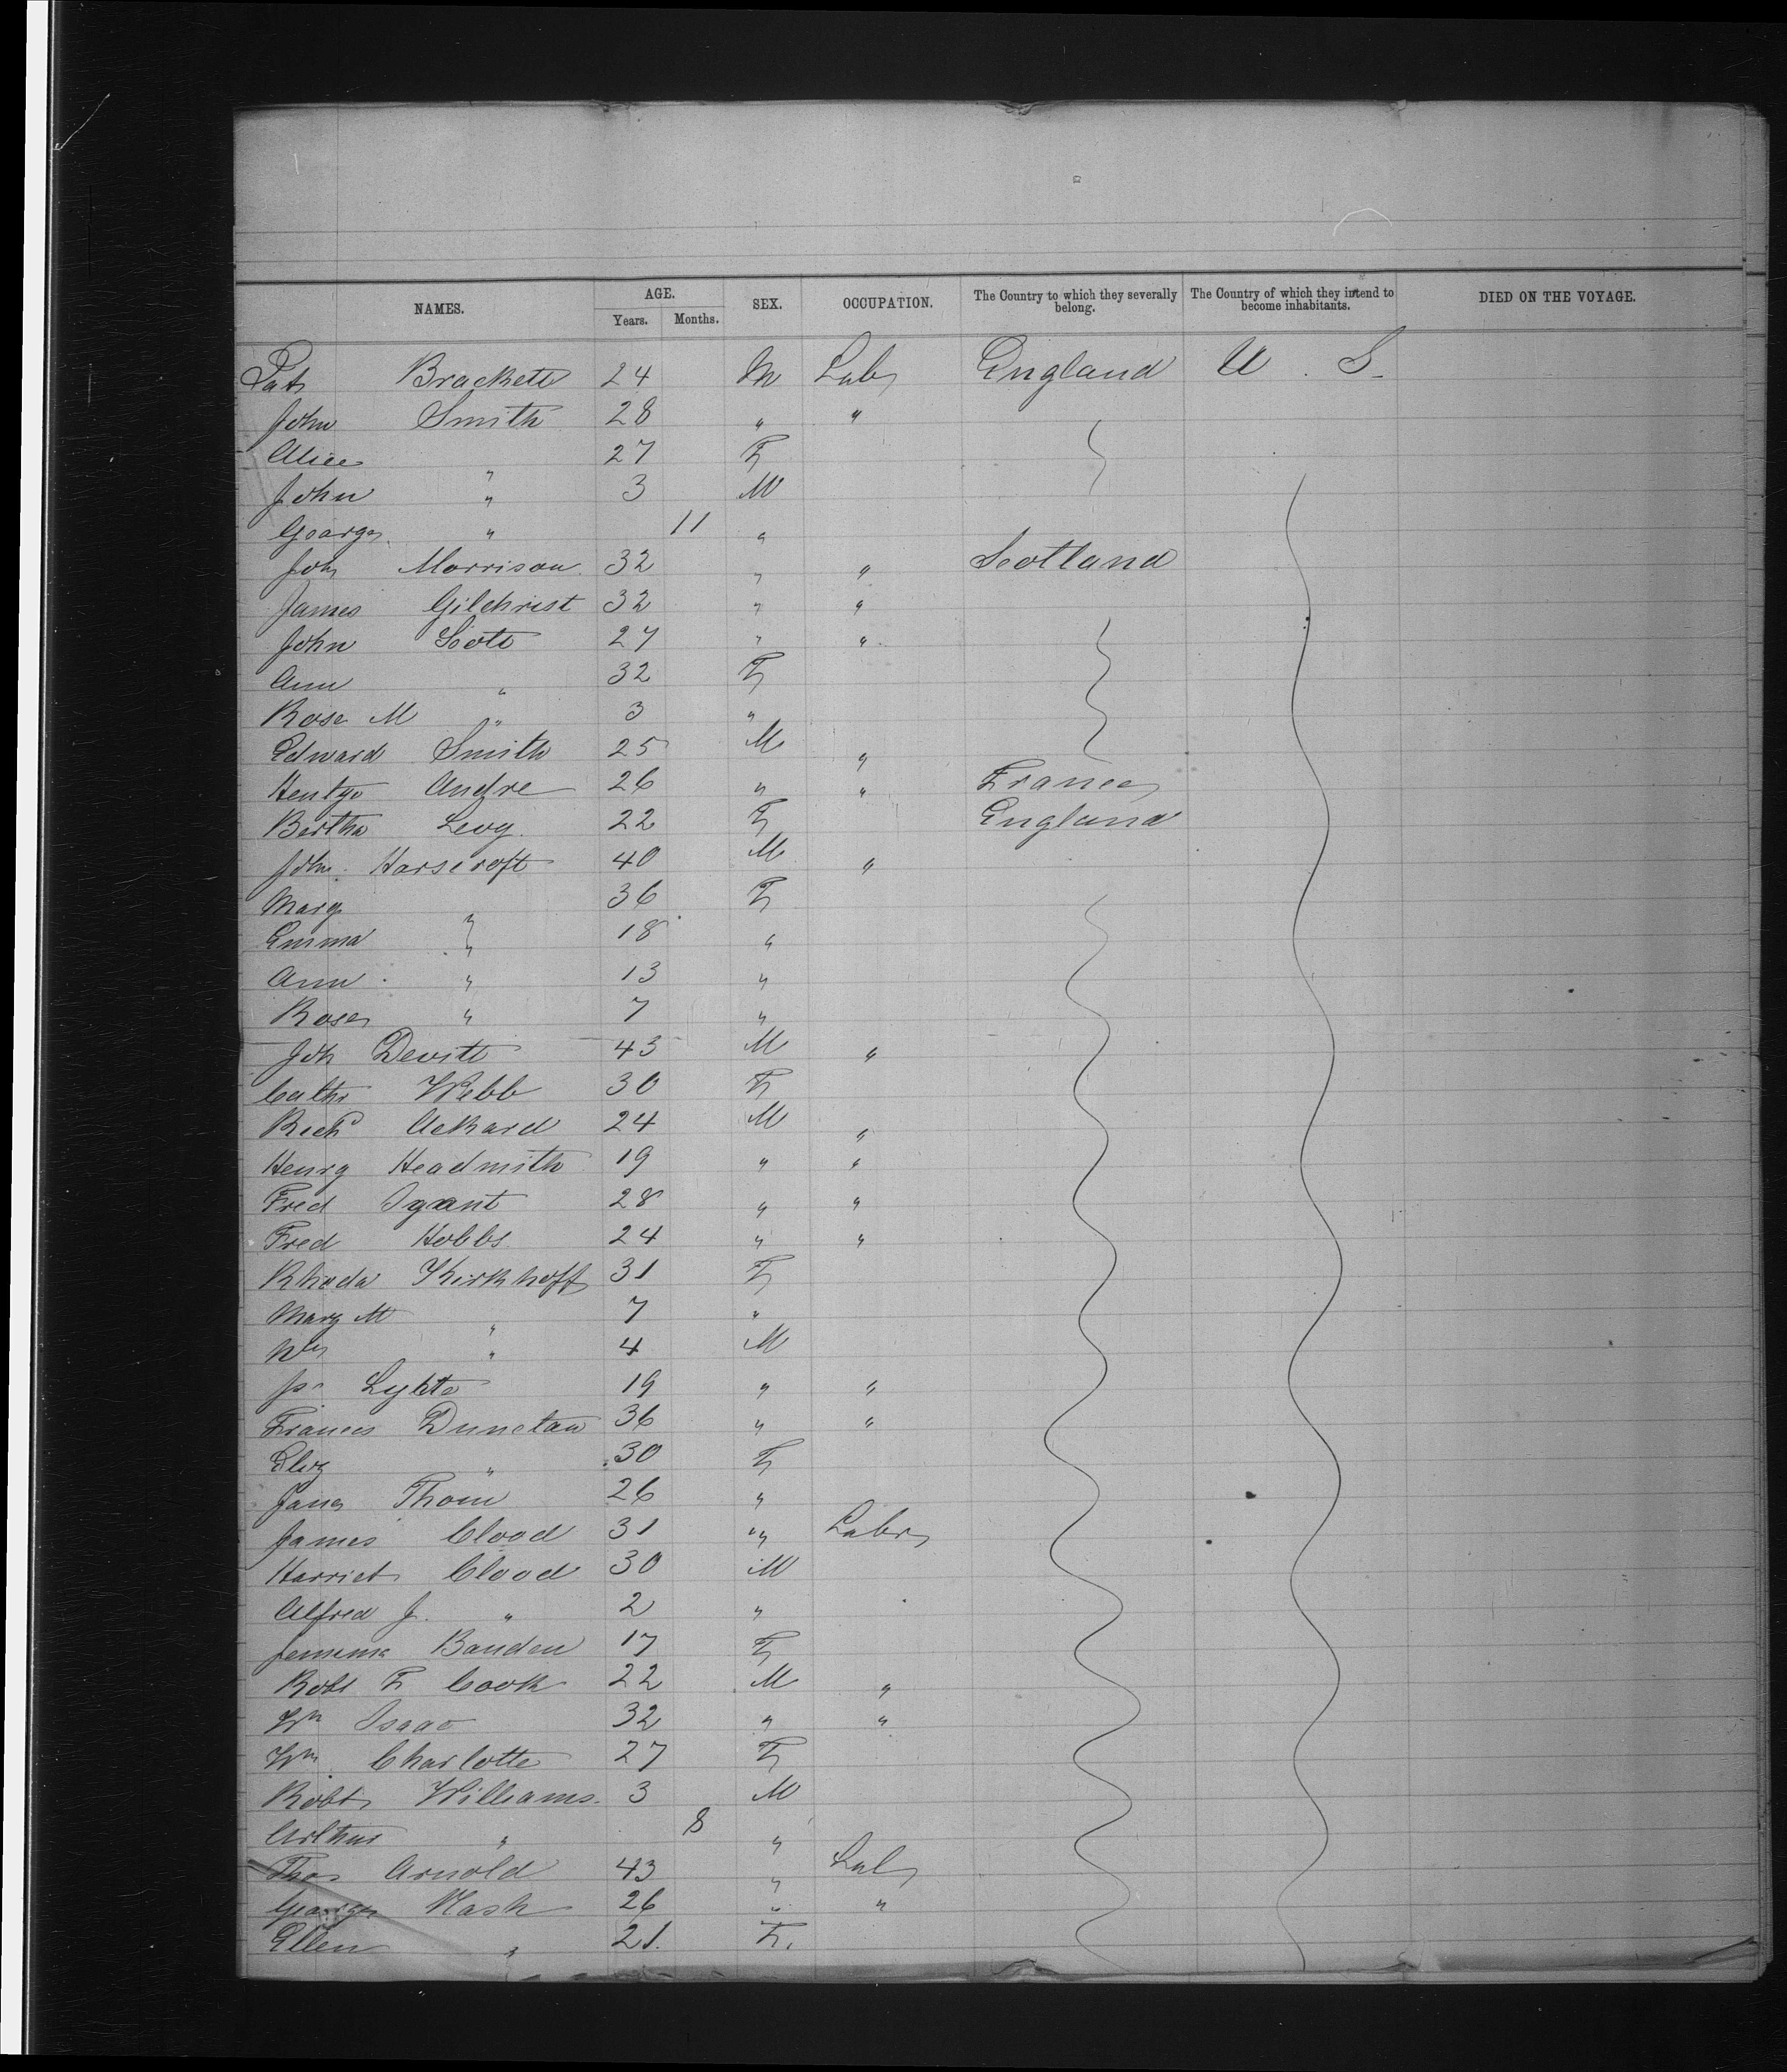 NAMES. AGE. SEX. OCCUPATION. The Country to which they severally belong. The Country of which they intend to become inhabitants. DIED ON THE VOYAGE.
Years. Months.
Pat Brackett 24 M Labr England U. S.
John Smith 28 " "
Alice " 27 F
John " 3 M
George " 11 "
John Morrison 32 " " Scotland
James Gilchrist 32 " "
John Scott 27 " "
Ann " 32 F
Rose M " 3 "
Edward Smith 25 M "
Andre 26 " " France
Bertha Levy 22 F England
John Harscroft 40 M "
Mary " 36 F
Emma " 18 "
Ann " 13 "
Rose " 7 "
Joh Devitt 43 M "
Cath Webb 30 F
Richd Ackard 24 M "
Henry Headmith 19 " "
Fred 28 " "
Fred Hobbs 24 " "
Rhoda Kirkhoff 31 F
Mary M " 7 "
" 4 M
19 " "
Frances Dunctan 36 " "
Eliz " 30 F
Jane Thom 26 "
James Clood 31 " Labr
Harriet Clood 30 M
Alfred J. " 2 "
Jemima Bauden 17 F
Robt F Cook 22 M "
Wm Isaac 32 " "
Wm Charlotte 27 F
Robt Williams 3 M
Arthur " 8 "
Thos Arnold 43 " Labr
George Nash 26 " "
Ellen " 21. F.